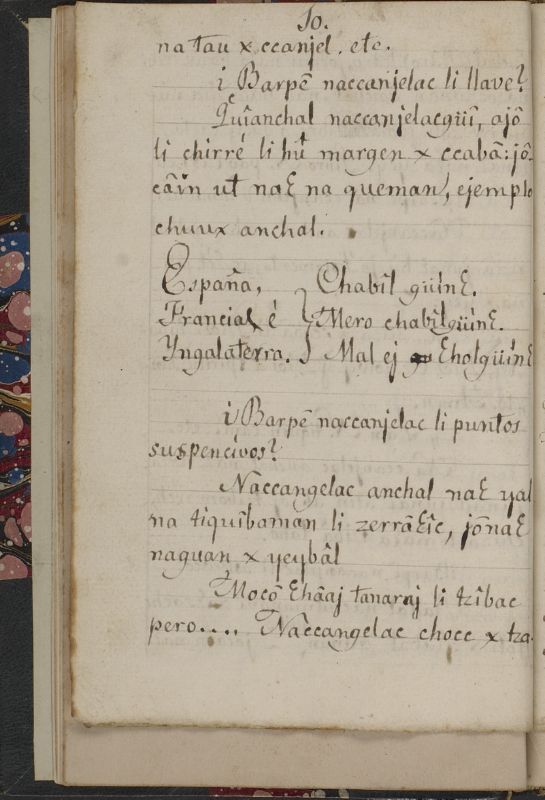 10.
na tau x ccanjel, etc.
¿Barpê naccanjelac li llave?
Quîanchal naccanjelacgüî, ajô
li chirré li hû margen x ccabâ: jô-
câîn ut naƐ na queman, ejemplo
chuux anchal.
España, } Chabîl güínƐ.
Francia, é } Mero chabîlgüínƐ.
Yngalaterra. } Mal ej Ɛholgüínɛ
¿Barpê naccanjelac li puntos
suspencivos?
Naccangelac anchal naƐ yal
na tiquîbamân li zerrâƐîc, jônaƐ
naguan, x yeybâl
Mocô Ɛhâaj tanaraj li tzîbac
pero.... Naccangelac chocc x tza-